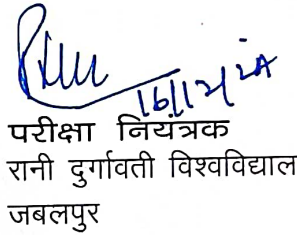 16/12/24
परीक्षा नियंत्रक
रानी दुर्गावती विश्वविद्याल
जबलपुर